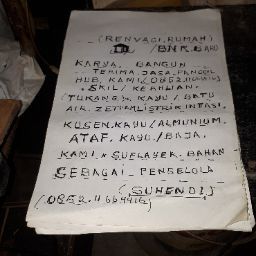 (RENVAGI,RUMAH)
/BNR.BARU
KARYA. BANGUN
TERIMA,JASA,PANGGIL
HUB, KAMI,(0852.
.SKIL/ KEAHLIAN.
(TUKANG,². KAYU / BATU
AIR. LISTRIK INTASI.
KUSEN.KAYU/ALMUNIUM.
ATAF. KAYU./BAJA.
KAMI * SUPLAYER. BAHAN
SEBAGAI. PENGELOLA
(SUHENDI)
(0852.11664416)